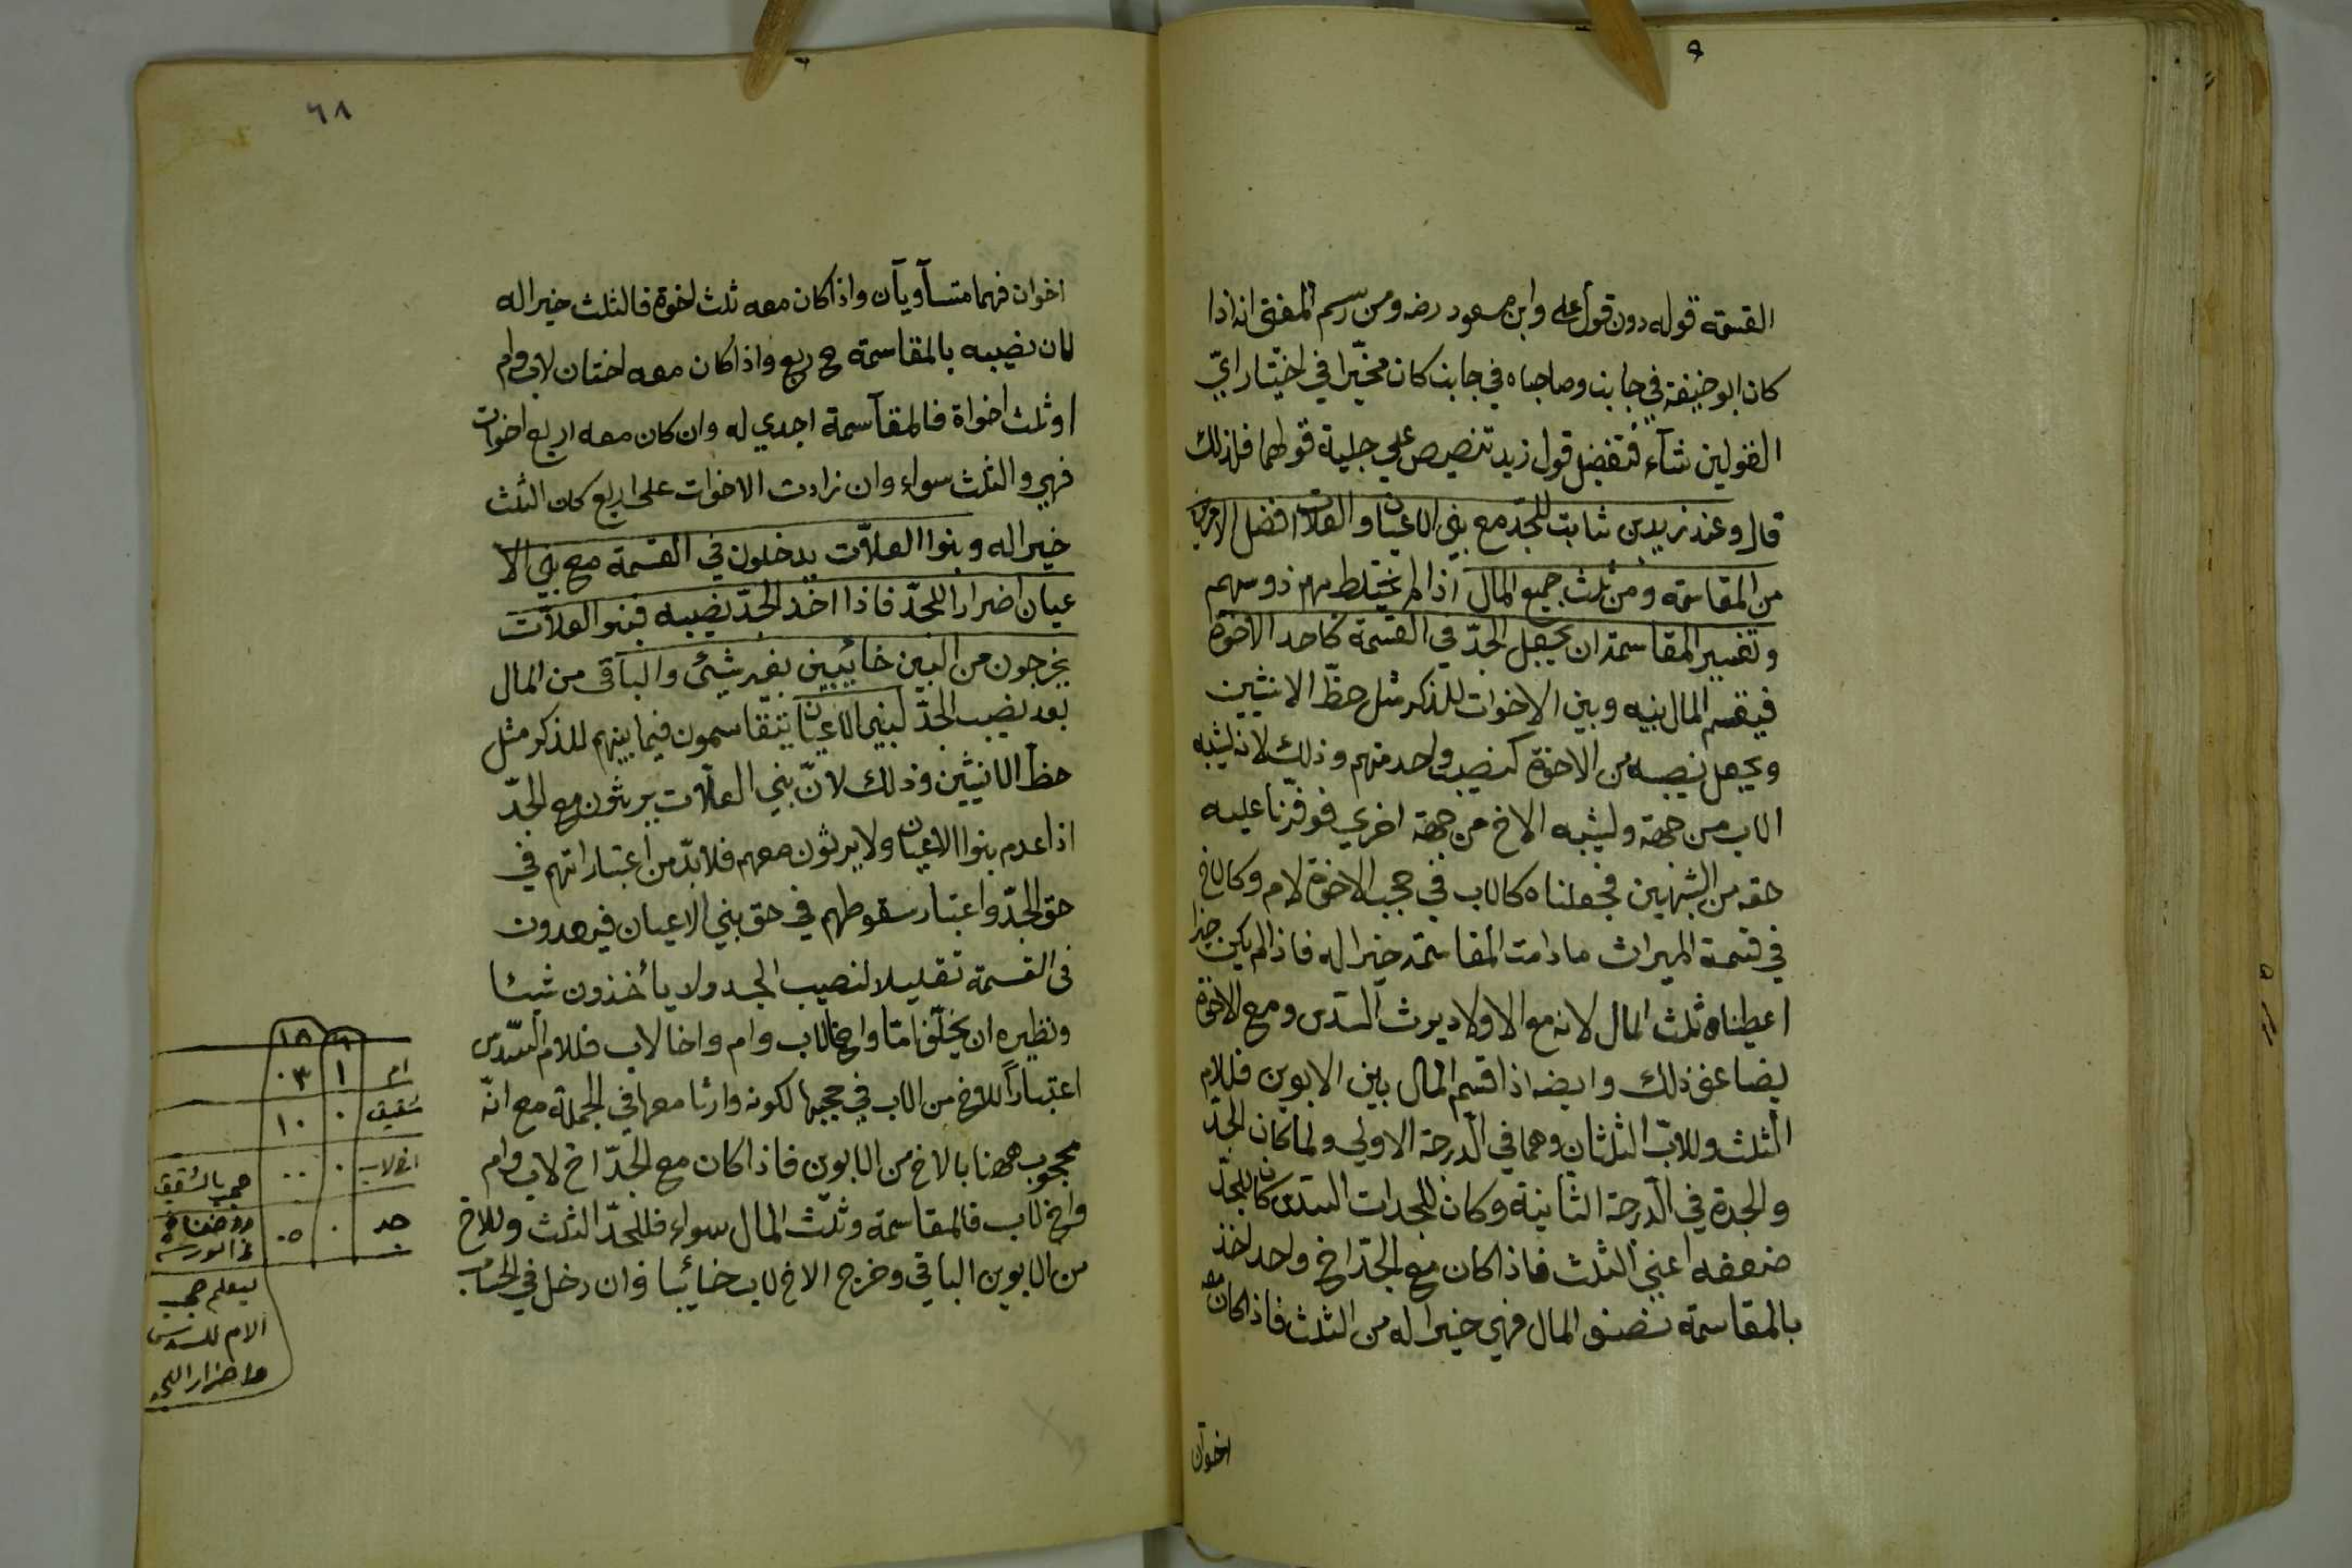 القسمة قوله دون قول على وابن مسعود رضه ومن رسم المفتى انه اذا
كان ابو حنيفة في جانب وصاحباه في جانب كان مخيّرا في اختيار ايّ
القولين شآء فتفضل قول زيد تنصيص على جلية قولهما فلذلك
قال وعند زيد بن ثابت للجدّ مع بني الاعيان والعلات افضل الامرين
من المقاسمة ومن ثلث جميع المال اذا لم يختلط بهم ذو سهم
وتفسير المقاسمة ان يجعل الجدّ في القسمة كاحد الاخوة
فيقسم المال بينه وبين الاخوات للذكر مثل حظّ الانثيين
ويجعل نصيبه من الاخوة كنصيب واحد منهم وذلك لانه يشبه
الاب من جهة ويشبه الاخ من جهة اخري فوفّرنا عليه
حقه من الشبهين فجعلناه كالاب في حجب الاخوة لام وكالاخ
في قسمة الميراث ما دامت المقاسمة خيرا له فاذا لم يكن خيرا
اعطيناه ثلث المال لانه مع الاولاد يرث السّدس ومع الاخوة
يضاعف ذلك وايضه اذا قسم المال بين الابوين فللام
الثلث وللابّ الثلثان وهما في الدّرجة الاولي ولما كان الجدّ
والجدة في الدّرجة الثانية وكان للجدات السّدس كان للجدّ
ضعفه اعني الثلث فاذا كان مع الجدّ اخ واحد اخذ
بالمقاسمة نصف المال فهي خيرا له من الثلث فاذا كان معه
اخوان
٦٨
اخوان فهما متسآويآن واذا كان معه ثلث اخوة فالثلث خيرا له
لان نصيبه بالمقاسمة ح ربع واذا كان معه اختان لاب وام
او ثلث اخواة فالمقآسمة اجدي له وان كان معه اربع اخوات
فهي والثلث سواء وان زادت الاخوات على اربع كان الثلث
خيرا له وبنوا العلاّت يدخلون في القسمة مع بني الا
عيان اضرارا للجدّ فاذا اخذ الجدّ نصيبه فبنو العلاّت
يخرجون من البين خائبين بغير شيئ والباقى من المال
بعد نصيب الجدّ لبني الاعيان يتقاسمون فيما بينهم للذكر مثل
حظ الانيثين وذلك لانّ بني العلاّت يرثون مع الجدّ
اذا عدم بنوا الاعيان ولا يرثون معهم فلا بدّ من اعتباراتهم في
حق الجدّ واعتبار سقوطهم في حق بني الاعيان فيرعدون
فى القسمة تقليلا لنصيب الجد ولا ياخذون شيئا
ونظيره ان يخلّف امّا واخا لاب وام واخا لاب فللام السّدس
اعتباراً للاخ من الاب في حجبها لكونه وارثا معها في الجملة مع انّه
محجوب ههنا بالاخ من الابوين فاذا كان مع الجدّ اخ لاب وام
واخ لاب فالمقاسمة وثلث المال سواء فللجدّ الثلث وللاخ
من الابوين الباقي وخرج الاخ لاب خائبا وان دخل في الحساب
٦ ١٨
ام ١ ٠٣
شقيق ٠ ١٠
اخ لاب ٠ ٠٠ حجب بالشقيق
جد ٠ ٠٥
ليعلم حجب
الام للسدس
واضرار الجد